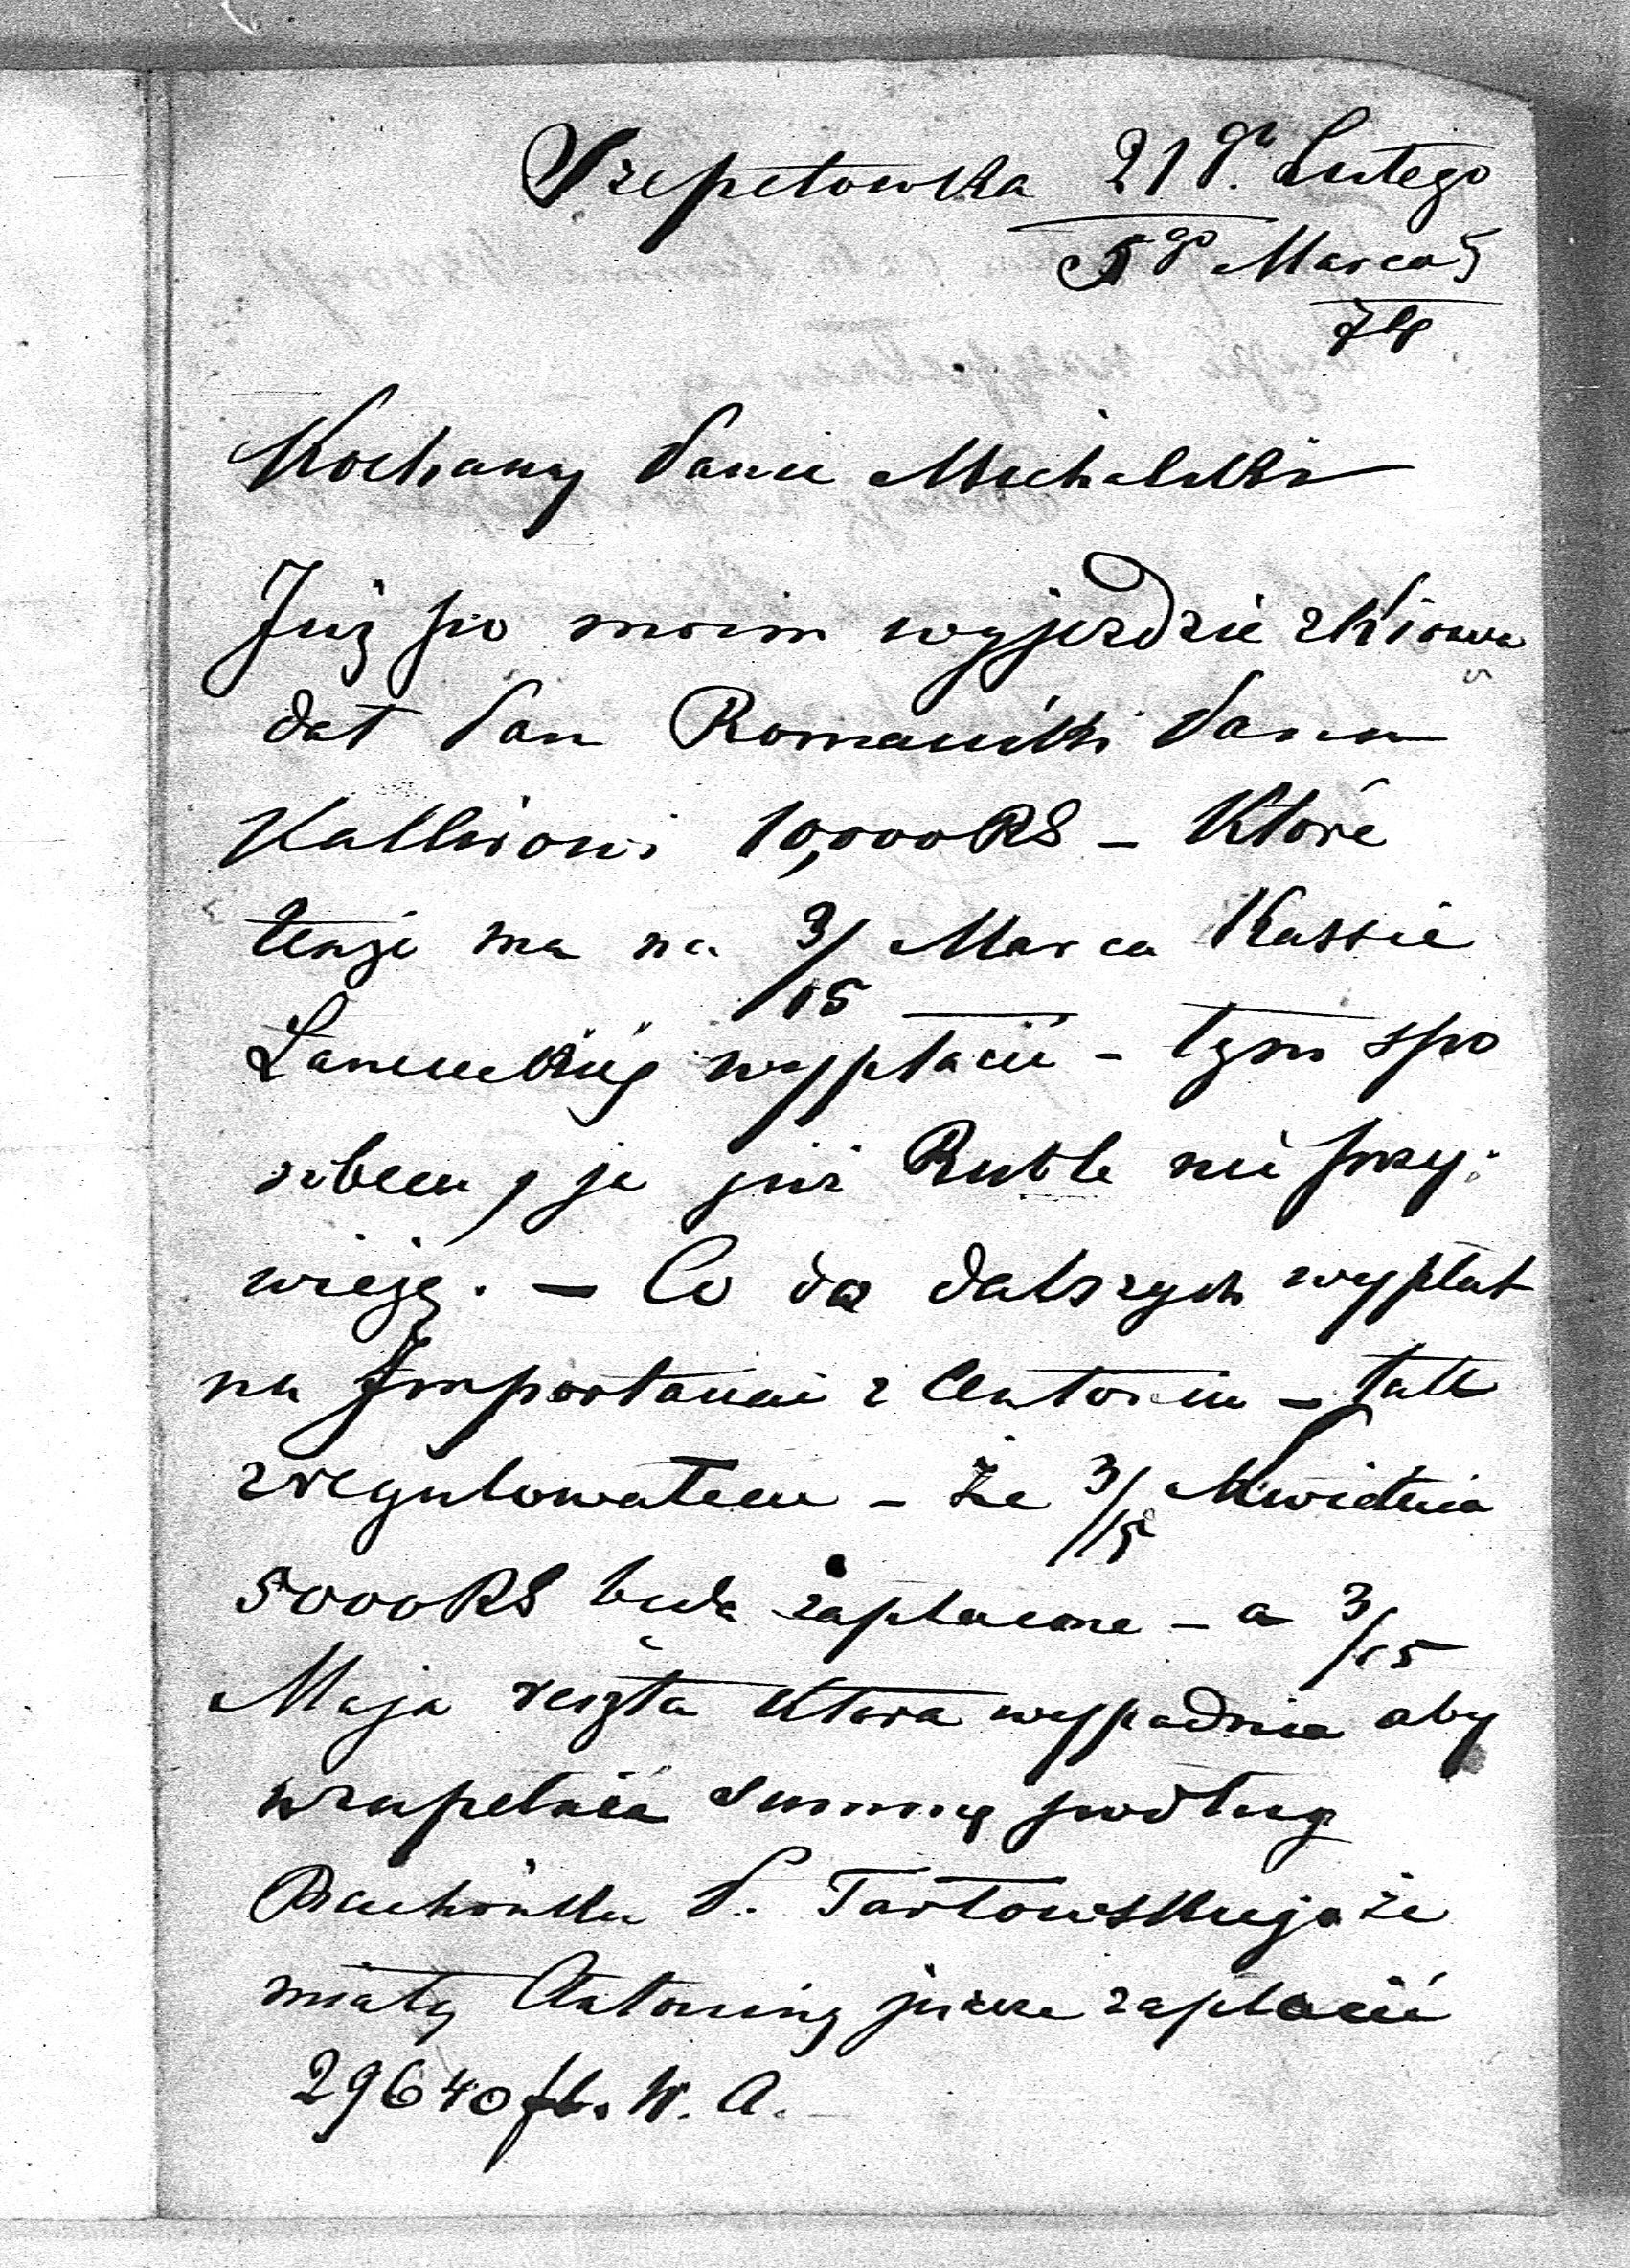 Szepetowka 21go Lutego
5go Marca
74
Kochany Panie Michalski
Już po moim wyjezdzie z Kiowa
dał Pan Romański Panu
10,000 RS – Które
tenże ma na 3/15 Marca Kassie
Łancuckiej wypłacić – tym spo
sobem, ja już Ruble nie przy:
wiezę. – Co do dalszych wypłat
na – tak
zregulowałem – że 3/15 Kwietnia
5000 RS będą zapłacone – a 3/15
Maja reszta Ktora wypadnie aby
uzupełnić Summę podług
Rachunku P. Tarłowskiego że
miały Antoniny jeszcze zapłacić
29640 fl. W. A.